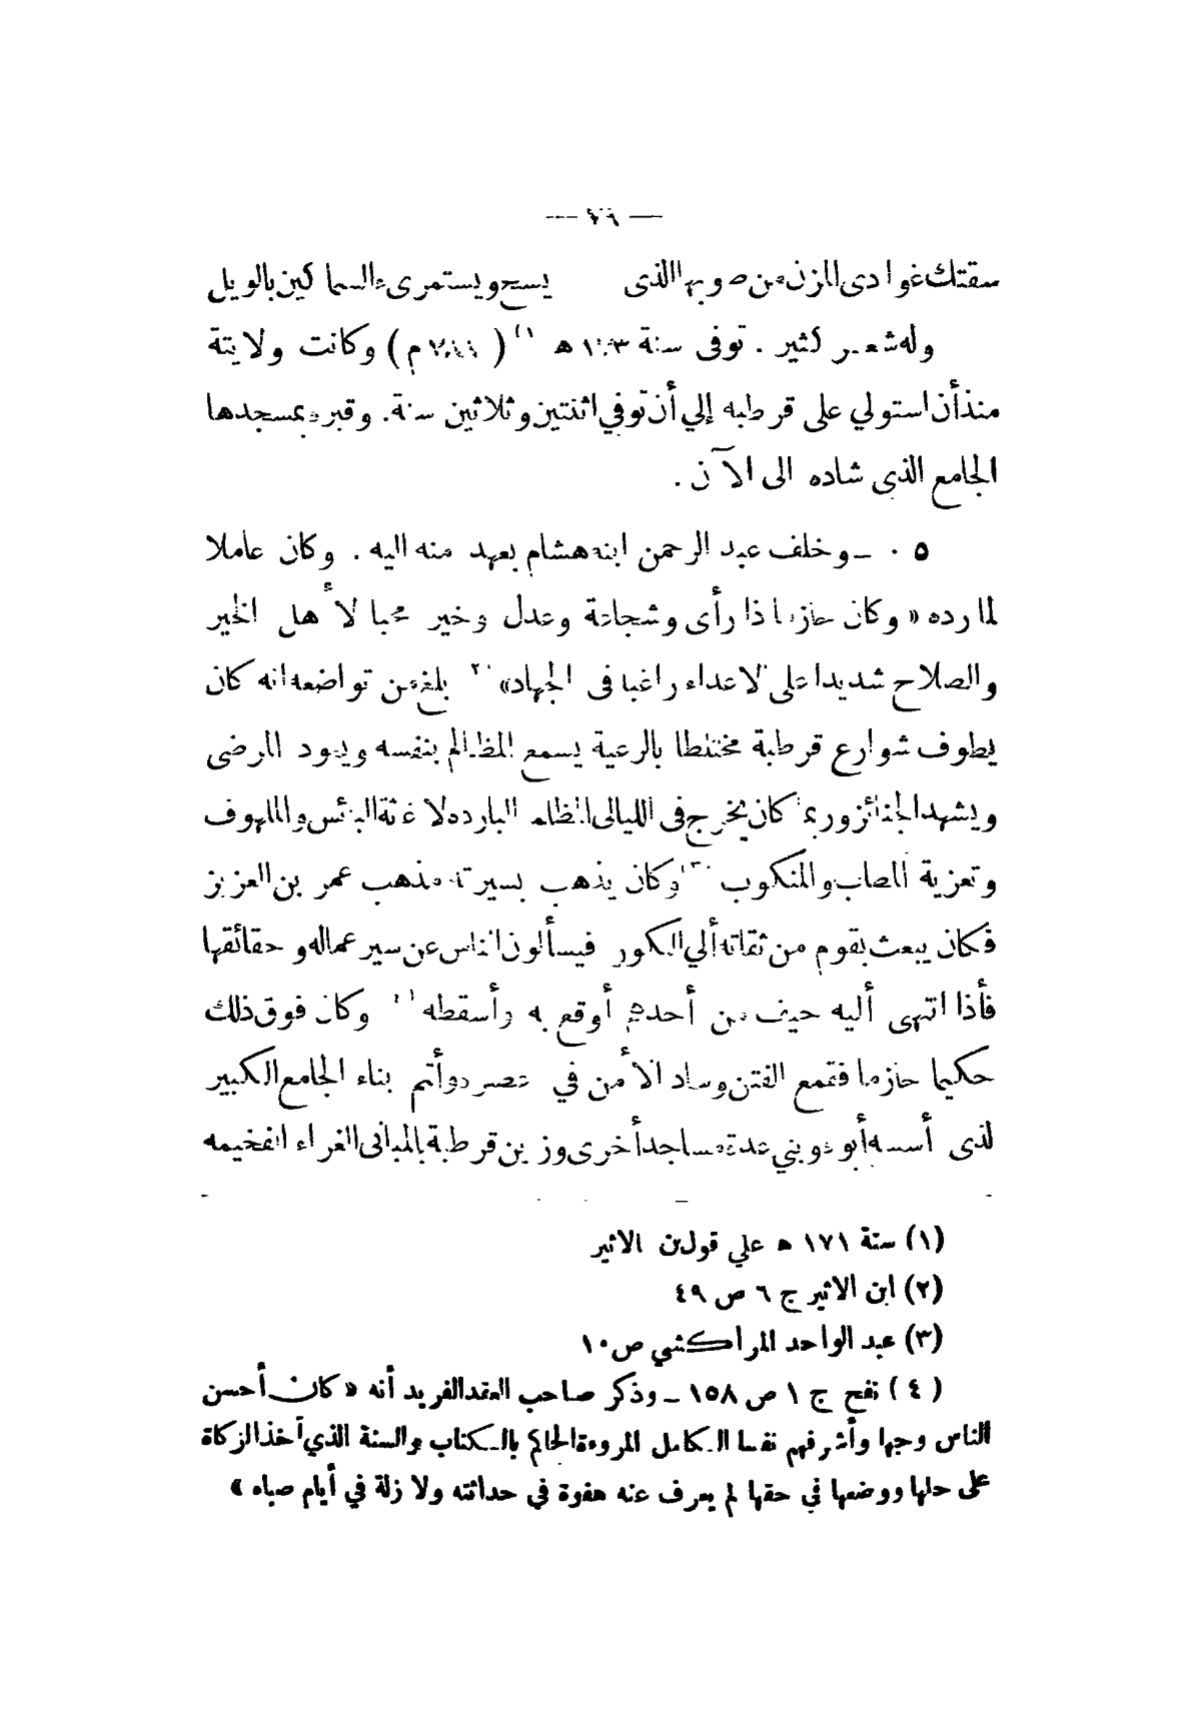 — ٤٦ —
سقتك غوادى المزن من صوبها الذى يسح ويستمرى السماكين بالويل
وله شعر كثير . توفى سنة هـ (١) ( م ) وكانت ولايتة
منذ أن استولي على قرطبه إلي أن توفي اثنتين وثلاثين سنة . وقبره بمسجدها
الجامع الذى شاده الى الآن .
٥ . – وخلف عبد الرحمن ابنه هشام بعهد منه اليه . وكان عاملا
لمارده « وكان حازما ذا رأى وشجاعة وعدل وخير محبا لأهل الخير
والصلاح شديدا على الاعداء راغبا فى الجهاد» ٢ بلغ من تواضعه انه كان
يطوف شوارع قرطبة مختلطا بالرعية يسمع المظالم بنفسه ويعود المرضى
ويشهد الجنائز وربما كان يخرج فى الليالى المظلمه البارده لاغاثة البائس والملهوف
وتعزية المصاب والمنكوب (٣) وكان يذهب بسيرته مذهب عمر بن العزيز
فكان يبعث بقوم من ثقاته ألي الكور فيسألون الناس عن سير عماله وحقائقها
فأذا انتهى أليه حيف من أحدهم أوقع به وأسقطه وكان فوق ذلك
حكيما حازما فقمع الفتن وساد الأمن في عصره وأتم بناء الجامع الكبير
لذى أسسه أبوه وبني عدة مساجد أخرى وزين قرطبة بالمبانى الغراء الفخيمه
(١) سنة ١٧١ هـ علي قول بن الاثير
(٢) ابن الاثير ج ٦ ص ٤٩
(٣) عبد الواحد المراكشي ص ١٠
(٤) نفح ج ١ ص ١٥٨ – وذكر صاحب العقد الفريد أنه « كان أحسن
الناس وجها وأشرفهم نفسا الكامل المروءة الحاكم بالكتاب والسنة الذي آخذ الزكاة
على حلها ووضعها في حقها لم يعرف عنه هفوة في حداثته ولا زلة في أيام صباه »